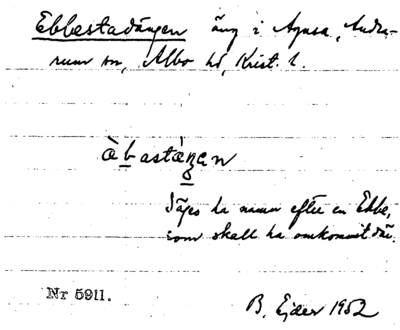 Ebbestadängen äng i Agusa, Andra-
rum sn, Albo hd, Krist. l.
àbastáŋen
Säges ha namn efter en Ebbe,
som skall ha omkommit där.
Nr 5911.
B. Ejder 1952